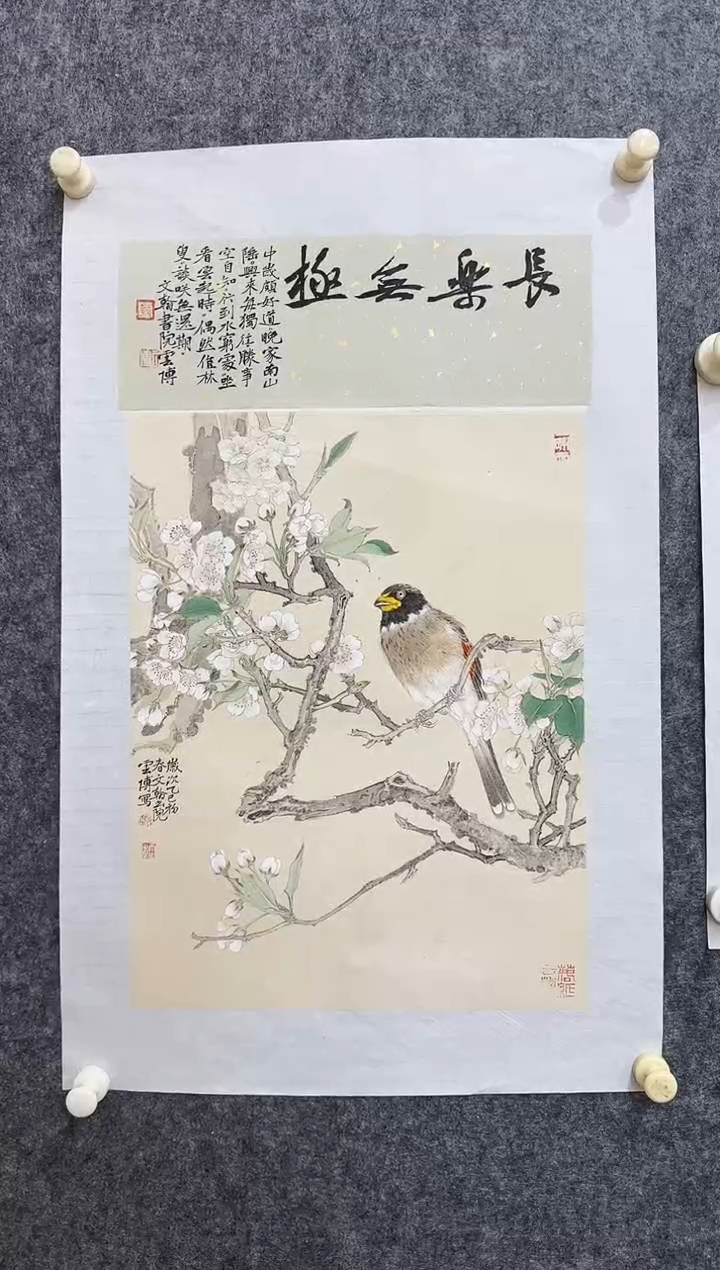 長樂無極
中歲頗好道晚家南山
陲興來每獨往勝事
空自知行到水窮處坐
看雲起時偶然值林
叟談咲無還期
文翰書院雲博
歲次乙巳初
春文翰書院
雲博寫